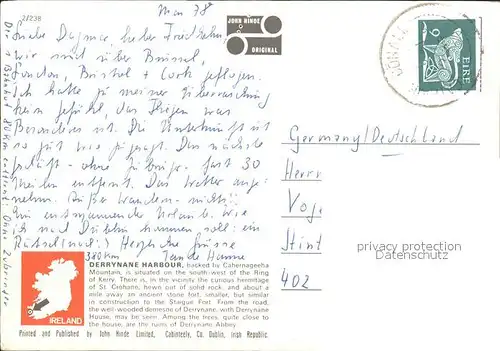 2/238
Mai 78
JOHN HINDE
ORIGINAL
Liebe Dagmar, lieber Friedhelm
wir sind über Brüssel,
London, Bristol + Cork geflogen.
Ich hatte zu meiner Überraschung
kein gefühl, das fliegen was
Besonderes ist. Die Unterkunft ist
so gut wie gesagt. Das nächste
geschäft - ohne fast 30
Meilen entfernt. Das Wetter ange-
nehm. Außer wandern - nichts!!
Ein entspannender Urlaub. Wie
ich nach Dublin kommen soll: ein
Rätsel (noch!) Herzliche Grüsse
380 km Tante Hanne
6
EIRE
Germany/Deutschland
Herrn
402
IRELAND
DERRYNANE HARBOUR, backed by Cahernageeha
Mountain, is situated on the south-west of the Ring
of Kerry. There is, in the vicinity the curious hermitage
of St. Crohane, hewn out of solid rock, and about a
mile away an ancient stone fort, smaller, but similar
in construction to the Staigue Fort. From the road,
the well-wooded demesne of Derrynane, with Derrynane
House, may be seen. Among the trees, quite close to
the house, are the ruins of Derrynane Abbey.
Printed and Published by John Hinde Limited, Cabinteely, Co. Dublin, Irish Republic.
Der Bahnhof 80 km entfernt. Ohne Zubringer
property of
oldthing.de